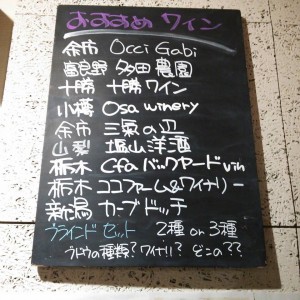 おすすめ ワイン
余市 Occi Gabi
富良野 多田農園
十勝 十勝ワイン
小樽 Osa winery
余市 三氣の辺
山梨 塩山洋酒
栃木 Cfa バックヤード vin
栃木 ココファーム&ワイナリー
新潟 カーブドッチ
ブラインド セット 2種 or 3種
ブドウの種類? ワイナリー? どこの??